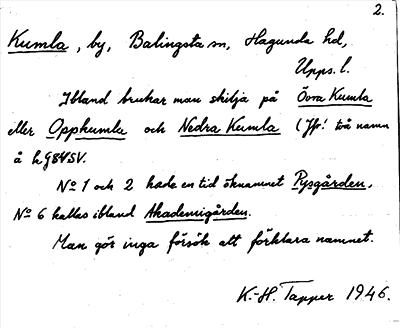 2.
Kumla, by, Balingsta sn, Hagunda hd,
Upps. l.
Ibland brukar man skilja på Övra Kumla
eller Oppkumla och Nedra Kumla (Jfr! två namn
å hg84SV.
No 1 och 2 hade en tid öknamnet Pysgården,
No 6 kallas ibland Akademigården.
Man gör inga försök att förklara namnet.
K.-H. Tapper 1946.